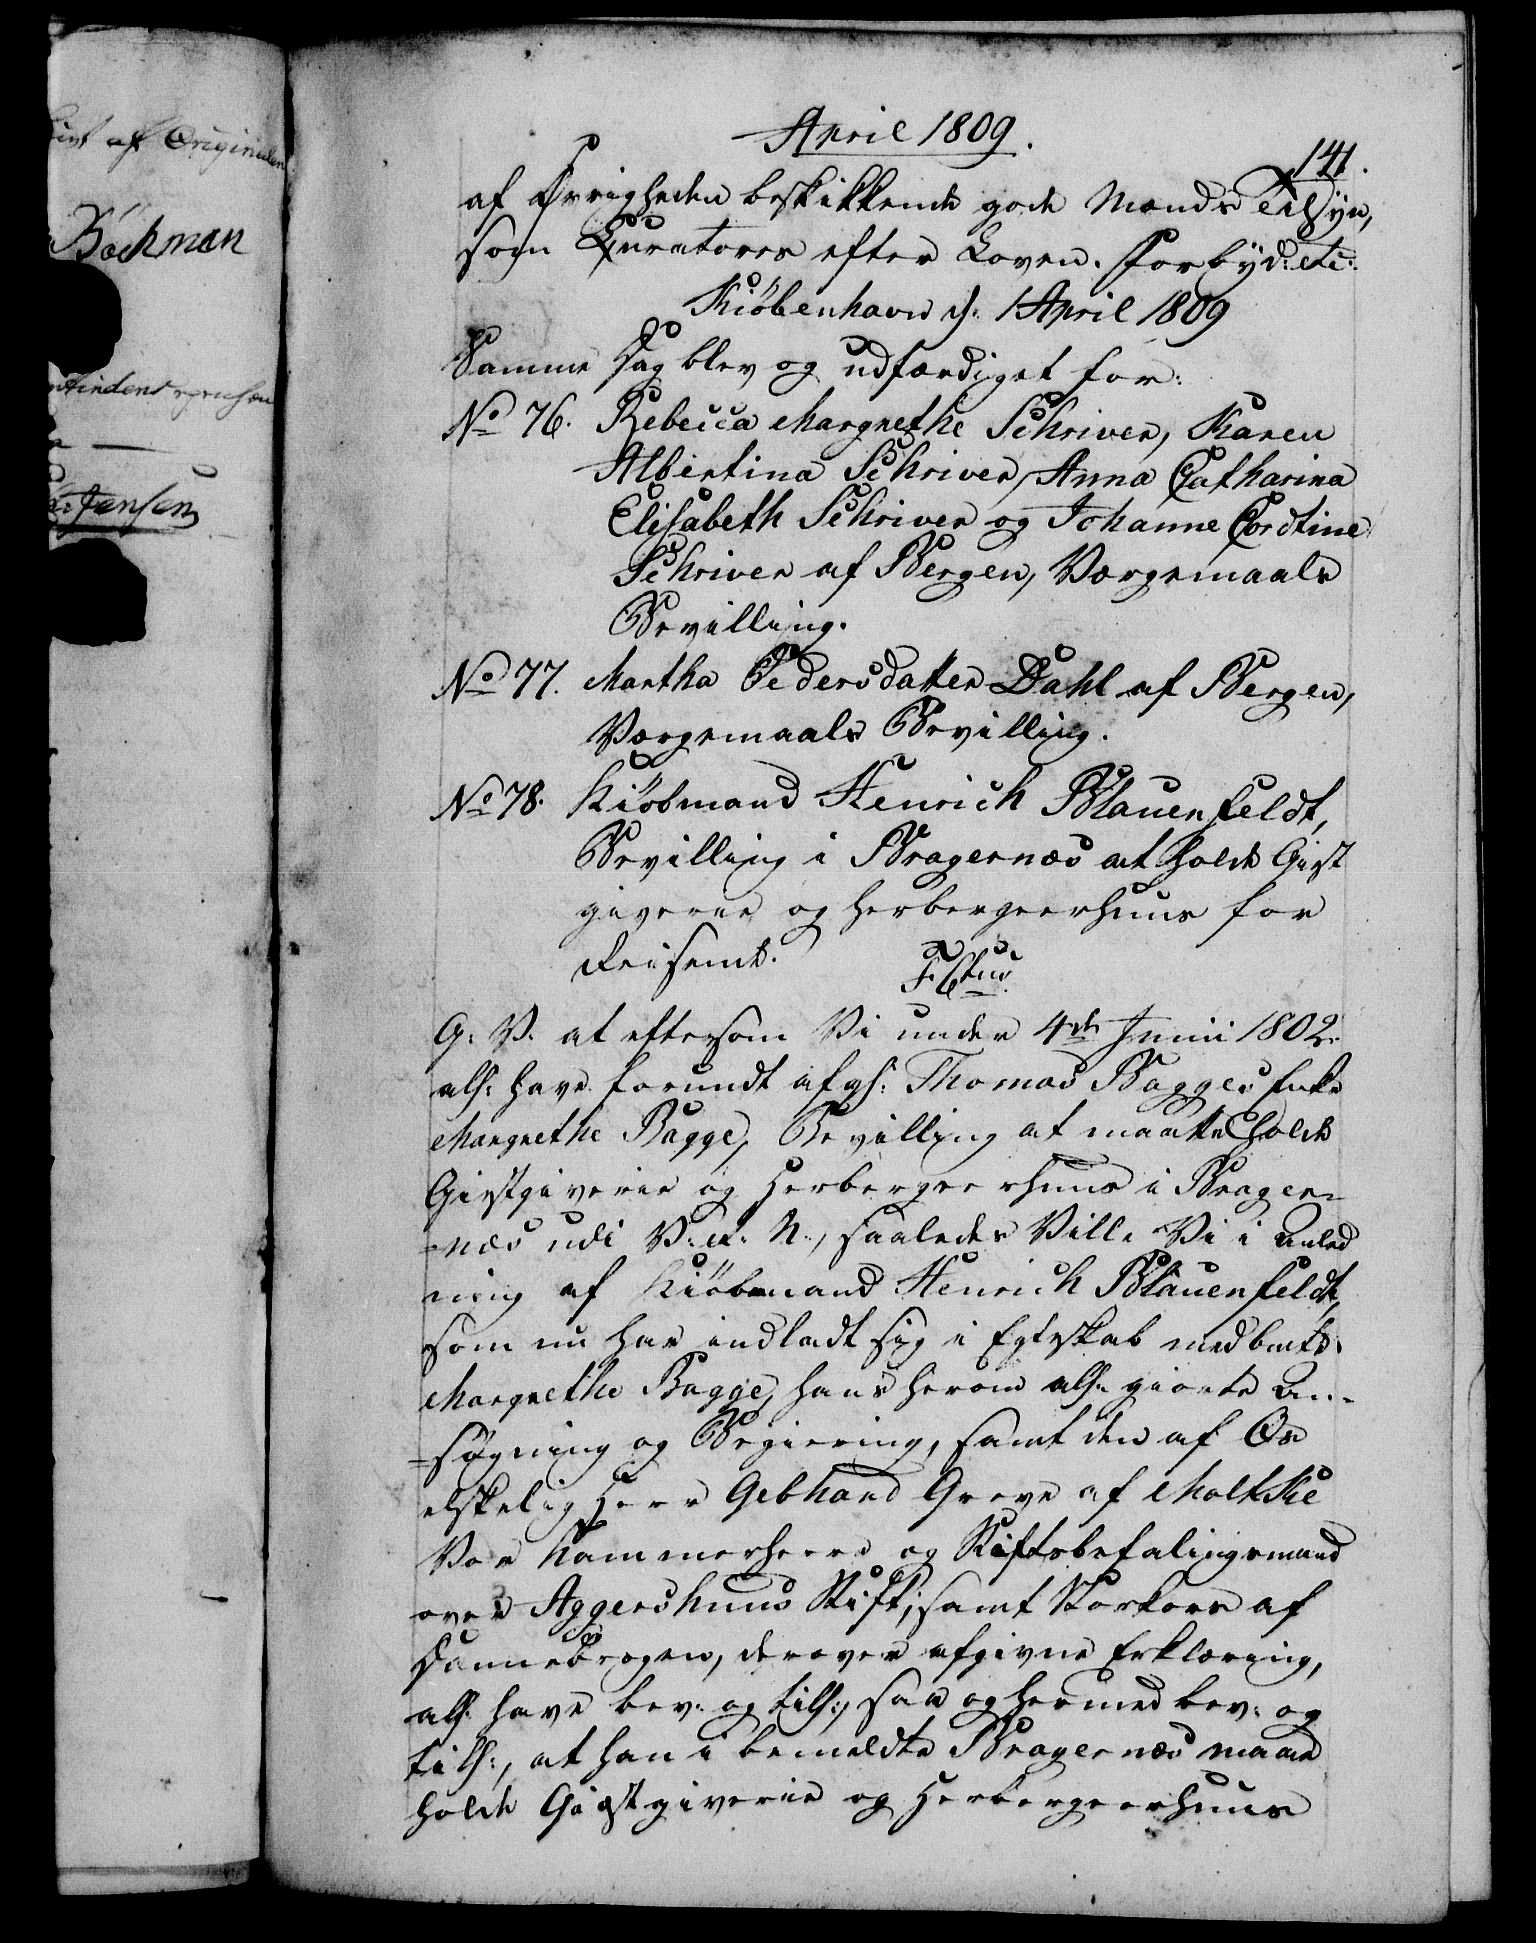 April 1809.
141.
af Øvrigheden beskikkende gode Mænds Tilsyn,
som Curatores efter Loven. Forbyd: etc:
Kiöbenhavn d: 1 April 1809
Samme Dag blev og udfærdiget for:
No 76. Rebecca Margrethe Schriver, Karen
Albertina Schriver, Anna Catharina
Elisabeth Schriver og Johanne Cordtine
Schriver af Bergen, Værgemaals
Bevilling.
No 77. Martha Pedersdatter Dahl af Bergen,
Værgemaals Bevilling.
No 78. Kiöbmand Henrich Blauenfeldt,
Bevilling i Bragernæs at holde Giæst
giverie og Herbergeerhuus for
Reisende.
F. 6tus.
G: V. at eftersom Vi under 4de Junii 1802
als: have forundt afg: Thomas Bagges Enke
Margrethe Bagge, Bevilling at maatte holde
Giæstgiverie og Herbergeerhuus i Brager=
=næs udi V: et: N:, saaledes Ville Vi i Anled
ning af Kiöbmand Henrich Blauenfeldt,
som nu har indladt sig i Egteskab med bemte
Margrethe Bagge, hans herom als: giorte An=
=søgning og Begiering, samt den af Os
elskelig Herr Gebhard Greve af Moltke
Vor Kammerherre og Stiftsbefalingsmand
over Aggershuus Stift, samt Storkors af
Dannebrogen, derover afgivne Erklæring,
als: have bev: og tils:, saa og hermed bev: og
tils:, at han i bemeldte Bragernæs maae
holde Giæstgiverie og Herbergeerhuus
af Originalen
Böckman
Jensen